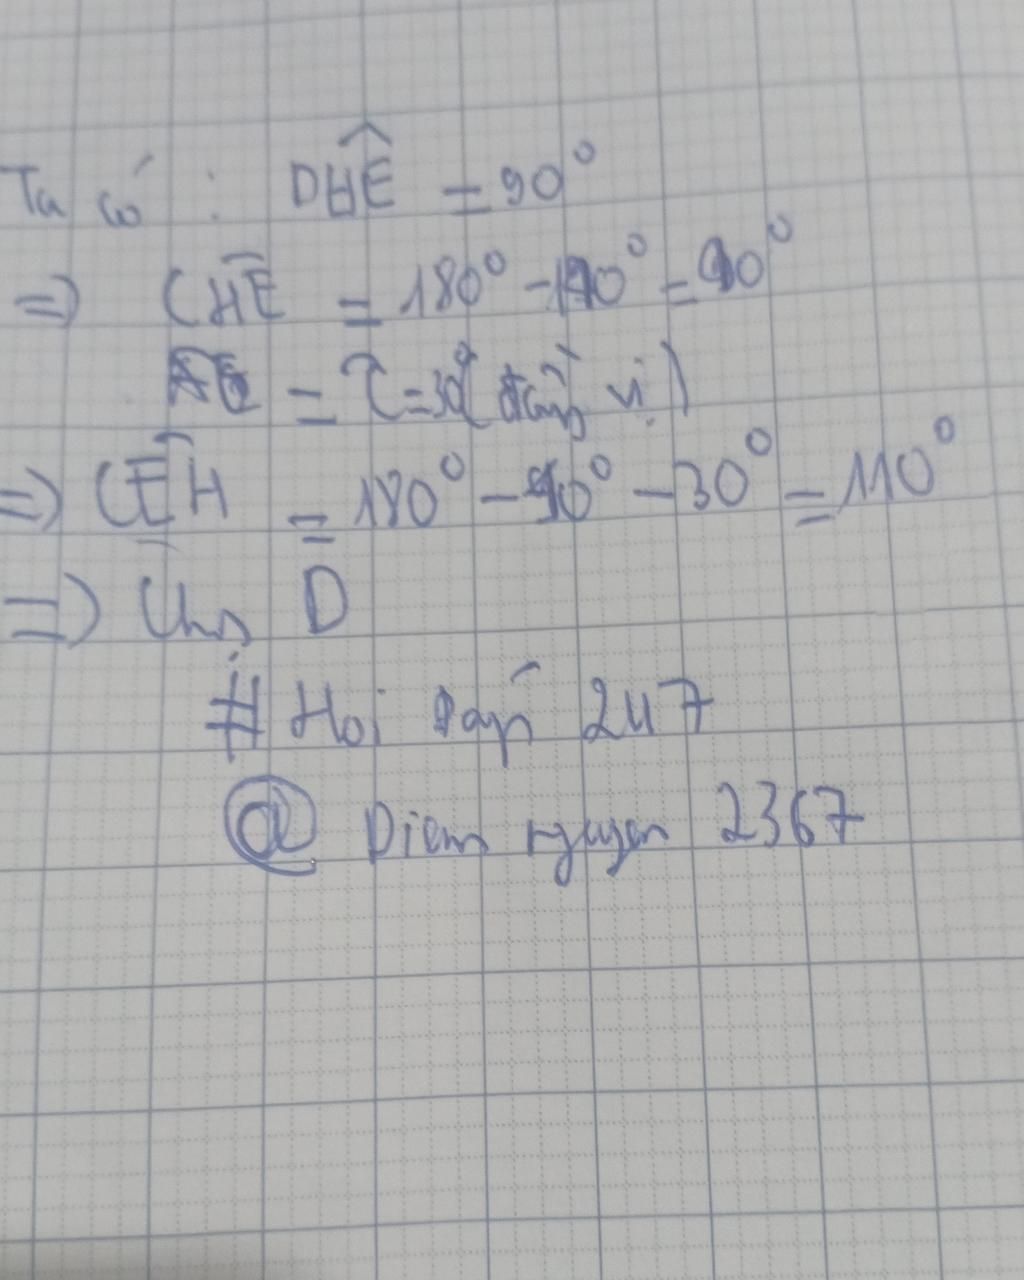 Ta có : DHE = 90°
=> CHE = 180° - 90° = 90°
= C = 30° ( vị )
=> CEH = 180° - 90° - 30° = 110°
=> D
# Hoi dap 247
@ Diem nguyen 2367